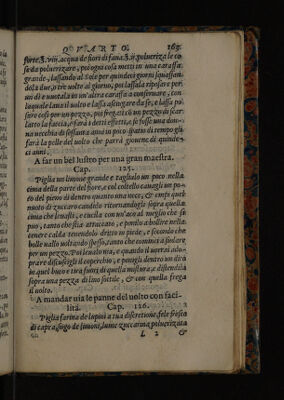 QVARTO. 163
forte. ℥. viii. acqua de fiori di faua. ℥. ii. polueriza le co
se da poluerizare, poi ogni cosa metti in una caraffa
grande, lassando al Sole per quindeci giorni squassan
dola due, o tre volte al giorno, poi lassala riposare per
un dì e vuotala in un'altra caraffa a conseruare, con
laquale laua il uolto e lassa asciugare da se, e lassa po
sare cosi per un pezzo, poi fregati cõ un pezzo di scar
latto la faccia, e farà i detti effetti, e se fosse una don-
na vecchia di sessanta anni in poco spatio di tempo gli
farà la pelle del uolto che parrà giouene di quinde-
ci anni.
A far un bel lustro per una gran maestra.
Cap. 125.
Piglia un limone grande e taglialo un poco nella
cima della parte del fiore, e col coltello cauagli un po-
co del pieno di dentro quanto una noce, & empi quel
nuoto di zuccaro candido ritornandogli sopra quella
cima che leuasti, e cucila con un'aco al meglio che si
puo, tanto che stia attaccato, e ponilo a bollire nella
cenere calda tenendolo dritto in piede, e secondo che
bolle uallo uoltando spesso, tanto che cominci a sudare
per un pezzo. Poi leualo uia, e quando il uorrai ado-
prare discuscegli il coperchio, e poniglì dentro un dito
in quel buco e tira fuori di quella mistura e distendila
sopra una pezza di lino sottile, & con quella frega
il uolto.
A mandar uia le panne del uolto con faci-
lità. Cap. 126.
Piglia farina de lupini a tua discretione, fele fresco
di capra, sugo de limoni, lume zuccarina poluerizata
L 2 &